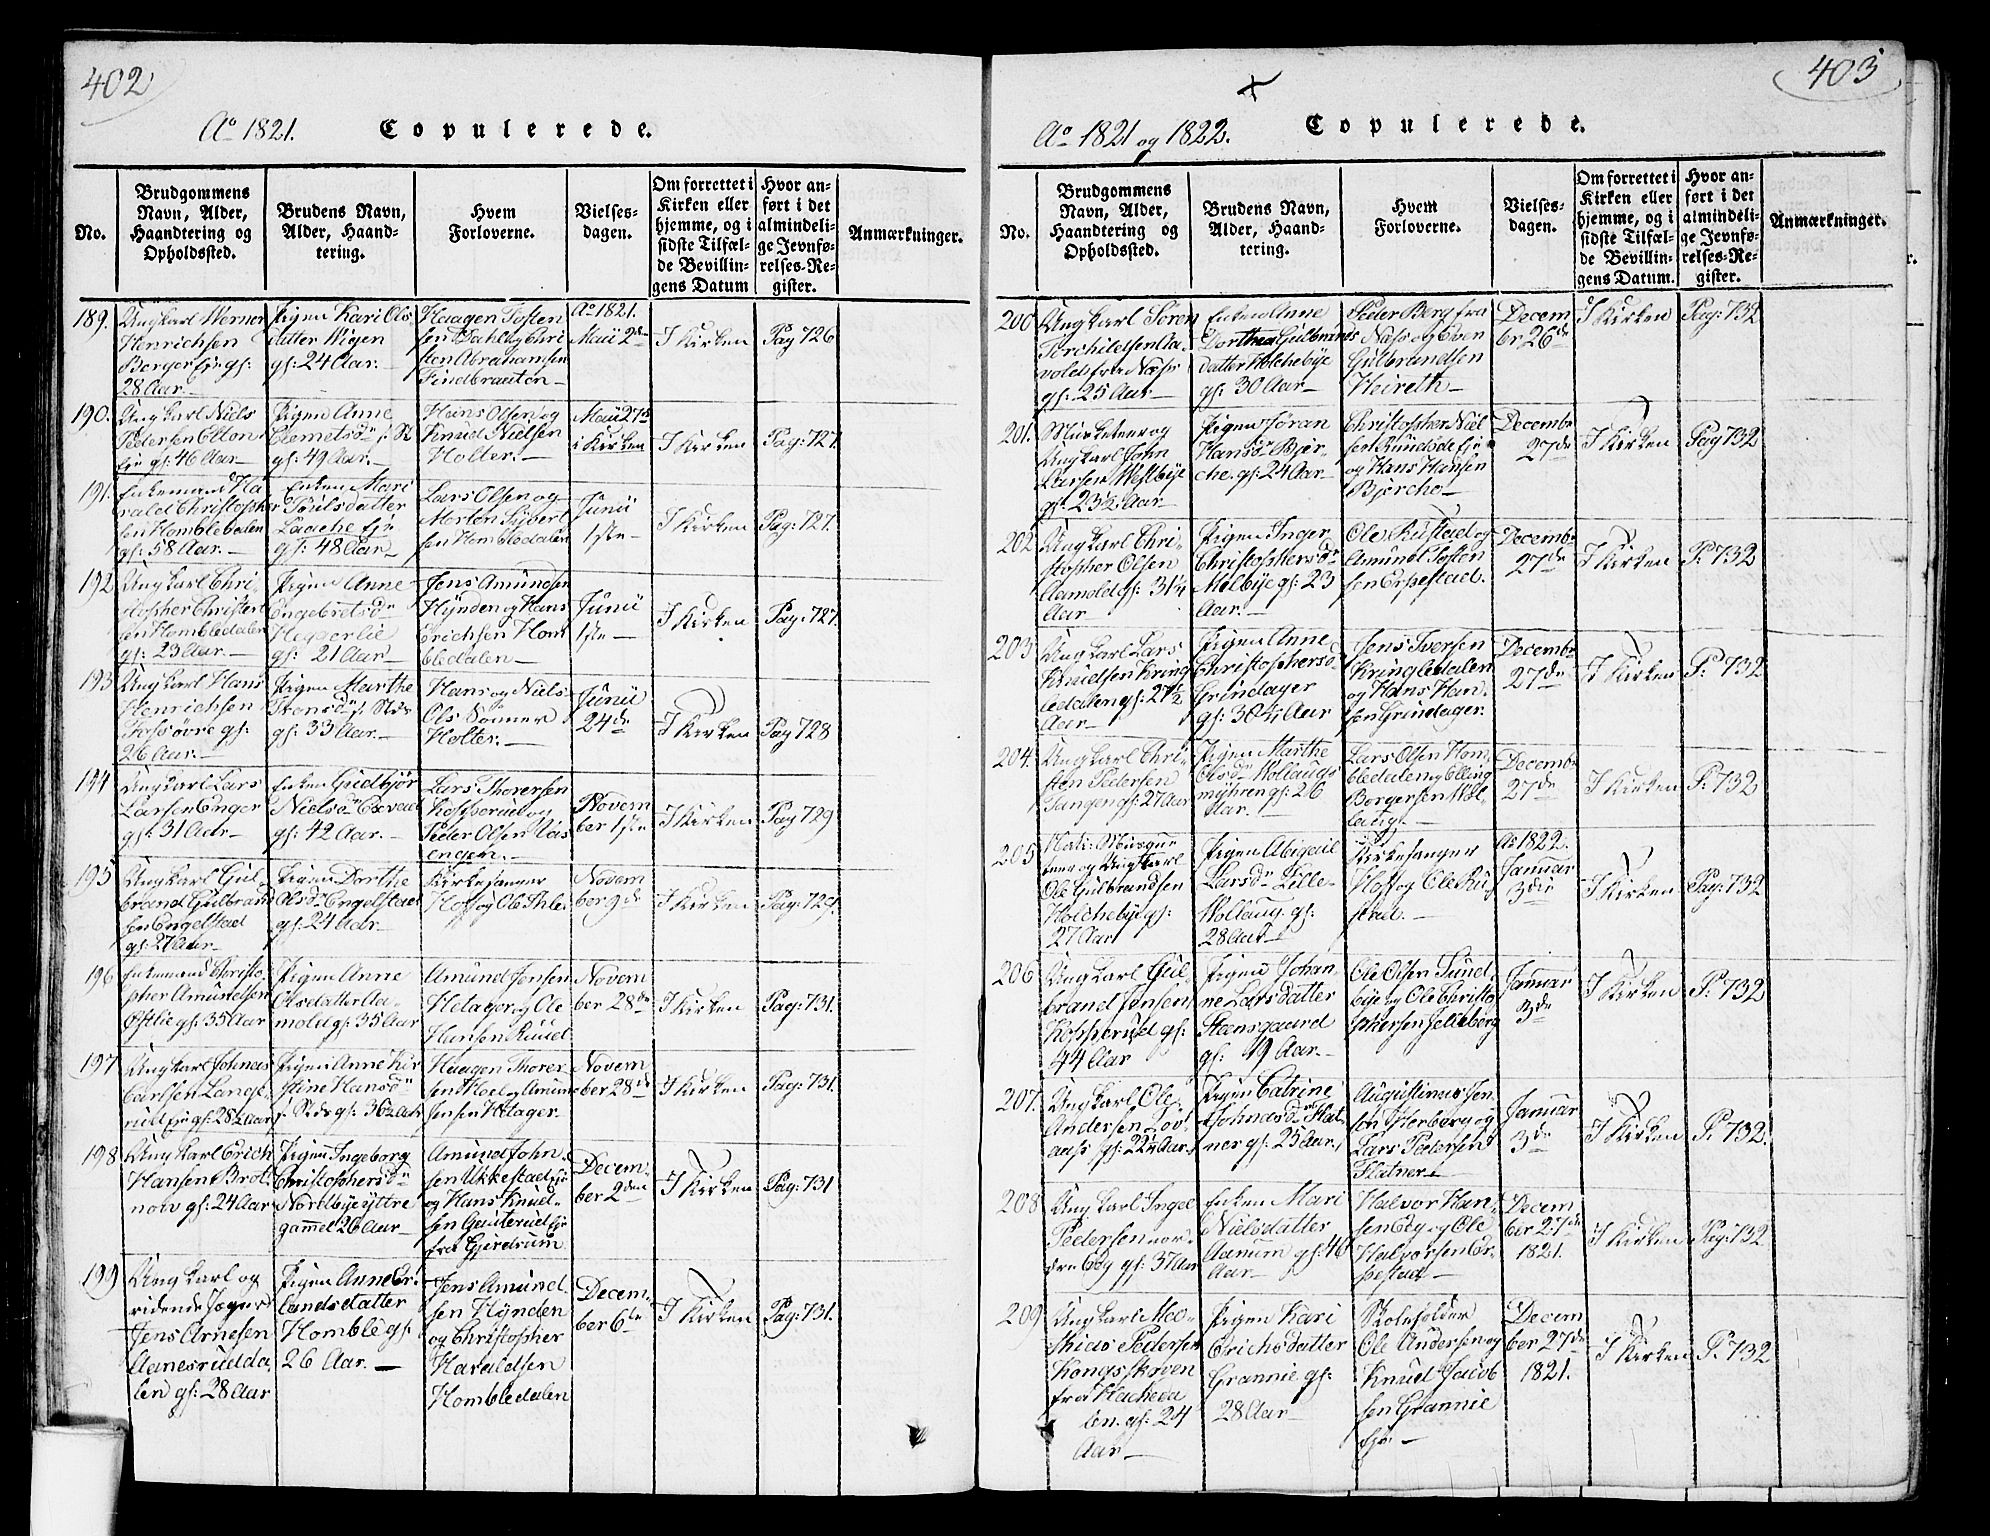 402
Ao 1821. Copulerede.
No.
Brudgommens Navn, Alder, Haandtering og Opholdssted.
Brudens Navn, Alder, Haandtering.
Hvem Forloverne.
Vielsesdagen.
Om forrettet i Kirken eller hjemme, og i sidste Tilfælde Bevillingens Datum
Hvor anført i det almindelige Jevnførelses-Register.
Anmærkninger.
189. Ungkarl Werner
Henrichsen
gf:
28 Aar
Pigen Kari Ols
datter Wigen
gf: 24 Aar.
Haagen Tosten
sen Dahl og Chri
sten Abrahamsen
Findbraaten
Ao 1821.
Maii 2de
I Kirken
Pag 726
190. Ungkarl Niels
Pedersen Elton
gf: 46 Aar
Pigen Anne
Clemetsdr
gf: 49 Aar.
Hans Olsen og
Knud Nielsen
Holter.
Maii 27de
i Kirken
I Kirken
Pag: 727.
191. Enkemand Ha
rald Christopher
sen Hombledalen
gf: 58 Aar.
Enken Mari
Poulsdatter
Laache
gf: 48 Aar
Lars Olsen og
Morten Sivert
sen Hombledalen
Junii
1ste
I Kirken
Pag: 727.
192. Ungkarl Chri
stopher Christen
sen Hombledalen
gf: 23 Aar.
Pigen Anne
Engebretsdr
gf: 21 Aar
Jens Amundsen
Hynden og Hans
Erichsen Hom
bledalen
Junii
1ste
I Kirken
Pag: 727.
193 Ungkarl Hans
Henrichsen
gf:
26 Aar.
Pigen Marthe
gf: 33 Aar.
Hans og Niels
Ols Sønner
Holter.
Junii
24de
I Kirken
Pag 728
194 Ungkarl Lars
Larsen Enger
gf: 31 Aar
Enken Gudbjør
Nielsdr
gf: 42 Aar.
Lars Thoresen
Kopperud og
Peder Olsen
engen.
Novem
ber 1ste
I Kirken
Pag 729
195 Ungkarl Gul
brand Gulbrand
sen Engelstad
gf: 27 Aar
Pigen Dorthe
Olsdr Engelstad
gf: 24 Aar.
Kirkesanger
Hoff og Ole
Novem
ber 9de
I Kirken
Pag: 729.
196 Enkemand Christo
pher Amundsen
Østlie gf: 35 Aar
Pigen Anne
Olsdatter Aa
mold gf: 35 Aar
Amund Jensen
Hetager og Ole
Hansen Ruud
Novem
ber 28de
I Kirken
Pag: 731.
197 Ungkarl Johnas
Carlsen Langs
rud gf: 28½ Aar
Pigen Anne Kir
stine Hansdr
gf: 36½ Aar
Haagen Thorer
sen Moe og Amun
Jensen Hetager.
Novem
ber 28de
I Kirken
Pag: 731.
198 Ungkarl Erich
Hansen Brot
now gf: 24 Aar
Pigen Ingeborg
Christophersdr
Nordbye yttre
gammel 26 Aar
Amund John
sen Ukkestad
og Hans Knud
sen
fra Gjerdrum
Decem
ber 2den
I Kirken
Pag: 731
199 Ungkarl og
ridende Jæger
Jens Arnesen
Aanesrudda
len gf: 28 Aar
Pigen Anne Er
landsdatter
Homble gf:
26 Aar.
Jens Amund
sen Hynden
og Christopher
Haraldsen
Hombledalen
Decem
ber 6te
I Kirken
Pag: 731.
403
Ao 1821 og 1822. Copulerede.
No.
Brudgommens Navn, Alder, Haandtering og Opholdssted.
Brudens Navn, Alder, Haandtering.
Hvem Forloverne.
Vielsesdagen.
Om forrettet i Kirken eller hjemme, og i sidste Tilfælde Bevillingens Datum.
Hvor anført i det almindelige Jevnførelses-Register.
Anmærkninger.
200 Ungkarl Søren
Torchildsen Aa
vold fra Næss
gf: 25 Aar
Enken Anne
Dorthea Gulbrands
datter Holchebye
gf: 30 Aar
Peder Berg fra
Næss og Even
Gulbrandsen
Heireth
Decem
ber 26de
I Kirken
Pag: 732
201. Musketeer og
Ungkarl John
Larsen Westbye
gf: 23½ Aar
Pigen Jøran
Hansdr Bjer
che. gf: 24 Aar
Christopher Niel
sen
og Hans Hansen
Bjerche
Decembr
27de
I Kirken
Pag 732
202 Ungkarl Chri
stopher Olsen
Aamold gf: 31½
Aar
Pigen Inger
Christophersdr
Melbye gf: 23
Aar.
Ole Rustad og
Amund Tosten
sen Erpestad.
Decembr
27de
I Kirken
P. 732
203 Ungkarl Lars
Knudsen Kring
ledalen gf: 27½
Aar
Pigen Anne
Christophersdr
Grindager
gf: 30¼ Aar
Jens Iversen
Kringledalen
og Hans Han
sen Grindager.
Decembr
27de
I Kirken
P. 732
204. Ungkarl Chri
sten Pedersen
Tangen gf: 27 Aar
Pigen Marthe
Olsdr Hollaugs
myhren gf: 26
Aar.
Lars Olsen Hom
bledalen og Elling
Borgersen Hol
laug.
Decembr
27de
I Kirken
P. 732
205 Musque
teer og Ungkarl
Ole Gulbrandsen
Holchebye gf:
27 Aar
Pigen Abigael
Larsdr Lille
Hollaug. gf:
28 Aar
Kirkesanger
Hoff og Ole Ru
stad.
Ao 1822.
Januar
3die
I Kirken
Pag: 732
206 Ungkarl Gul
brand Jensen
Kopperud gf:
44 Aar
Pigen Johan
ne Larsdatter
Steensgaard
gf: 49 Aar.
Ole Olsen Sund
bye og Ole Christo
phersen Jellieberg
Januar
3de
I Kirken
P. 732
207. Ungkarl Ole
Andersen Løv
aas gf: 22¼ Aar.
Pigen Catrine
Johnasdr Flat
ner gf: 25 Aar.
Augustinus Jen
sen Herberg og
Lars Pedersen
Flatner
Januar
3de
I Kirken
P. 732.
208 Ungkarl Ingel
Pedersen nor
dre Edg gf: 37 Aar
Enken Mari
Nielsdatter
Aanum gf: 46
Aar
Halvor Han
sen Edg og Ole
Halvorsen Er
pestad
Decem
ber 27de
1821.
I Kirken
Pag: 732
209 Ungkarl Ma
thias Pedersen
Kongsskoven
fra Hacheda
len. gf: 24
Aar
Pigen Kari
Erichsdatter
Grannie gf:
28 Aar
Skoleholder
Ole Andersen og
Knud Jacob
sen Grannie
Decem
ber 27de
1821.
I Kirken
P. 732